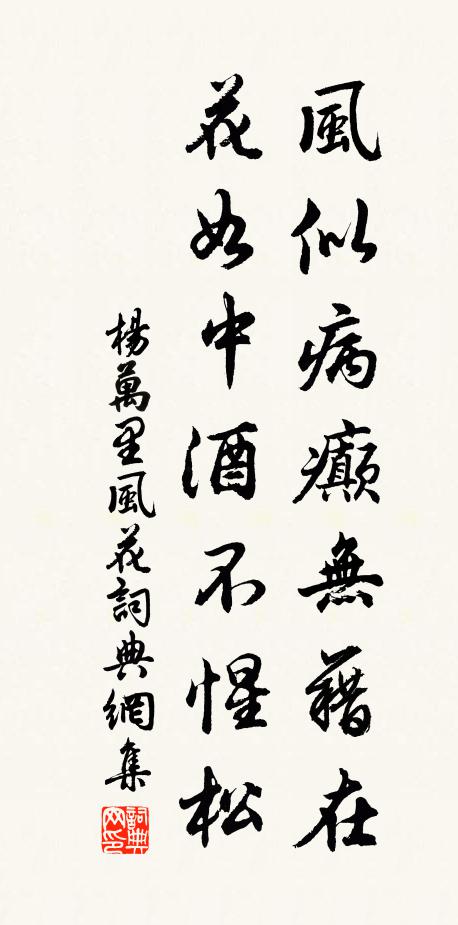 風似病癲無藉在
花如中酒不惺松
楊萬里風花詞典網集
詞典网印